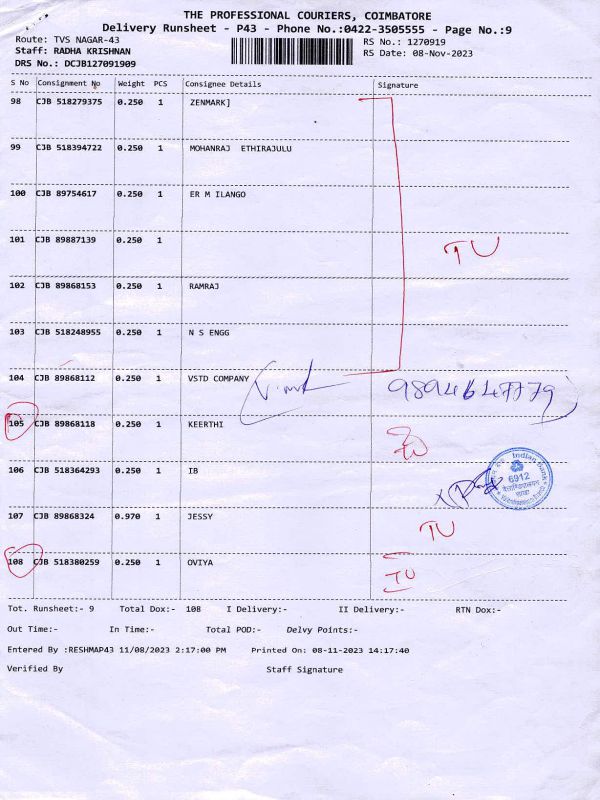 THE PROFESSIONAL COURIERS, COIMBATORE
Delivery Runsheet - P43 - Phone No.:0422-3505555 - Page No.:9
Route: TVS NAGAR-43
Staff: RADHA KRISHNAN
DRS No.: DCJB127091909
RS No.: 1270919
RS Date: 08-Nov-2023
S No Consignment No Weight PCS Consignee Details Signature
98 CJB 518279375 0.250 1 ZENMARK]
99 CJB 518394722 0.250 1 MOHANRAJ ETHIRAJULU
100 CJB 89754617 0.250 1 ER M ILANGO
101 CJB 89887139 0.250 1 TU
102 CJB 89868153 0.250 1 RAMRAJ
103 CJB 518248955 0.250 1 N S ENGG
104 CJB 89868112 0.250 1 VSTD COMPANY 9894647779
105 CJB 89868118 0.250 1 KEERTHI
106 CJB 518364293 0.250 1 IB Indian Bank 6912
107 CJB 89868324 0.970 1 JESSY TU
108 CJB 518380259 0.250 1 OVIYA TU
Tot. Runsheet:- 9 Total Dox:- 108 I Delivery:- II Delivery:- RTN Dox:-
Out Time:- In Time:- Total POD:- Delvy Points:-
Entered By :RESHMAP43 11/08/2023 2:17:00 PM Printed On: 08-11-2023 14:17:40
Verified By Staff Signature